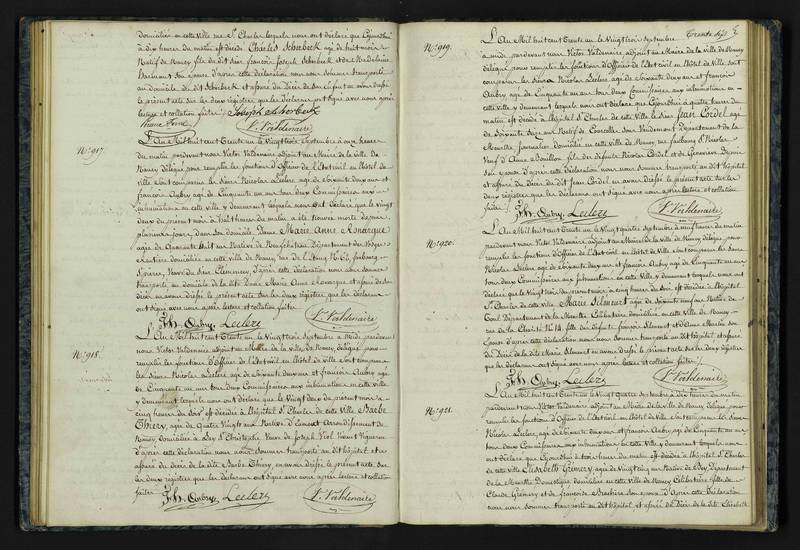 domiciliés en cette ville rue St Charles lesquels nous ont déclaré que Cejourd'hui
à dix heures du matin est décédé Charles Scherbeck agé de huit mois
Natif de Nancy fils du dit Sieur françois Joseph Scherbeck et de Madeleine
son épouse d'après cette déclaration nous nous sommes transporté
au domicile du dit Scherbeck et assuré du Décès de
le présent acte sur les deux registres, que les déclarans ont signé avec nous après
lecture et collation faites
V. Valdenaire
N.o 917.
L'An Mil huit cent Trente un le Vingt trois Septembre à onze heures
du matin pardevant nous Victor Valdenaire adjoint au Maire de la ville de
Nancy délégué pour remplir les fonctions d'Officier de l'Etat civil en l'hôtel de
ville sont comparus les Sieurs Nicolas Leclerc agé de soixante deux ans et
françois Aubry agé de Cinquante un ans tous deux Commissaires aux
inhumations en cette ville y demeurant lesquels nous ont déclaré que le Vingt
deux du présent mois à huit heures du matin a été trouvée morte depuis
plusieurs jours dans son domicile Dame Marie Anne Amarque
agée de Quarante huit ans Native de Département des Vosges
Rentière domiciliée en cette ville de Nancy rue de l'Etang N.o 62, faubourg St
Pierre, Veuve du Sieur d'après cette déclaration nous nous sommes
transporté au domicile de la dite Dame Marie Anne Amarque et assuré du
décès en avons dressé le présent acte sur les deux registres que les déclarans
ont signé avec nous après lecture et collation faites
fs. Aubry Leclerc V. Valdenaire
N.o 918.
L'An Mil huit cent Trente un le Vingt trois Septembre à Midi pardevant
nous Victor Valdenaire adjoint au Maire de la ville de Nancy, délégué pour
remplir les fonctions d'Officier de l'Etat civil en l'hôtel de ville sont comparus
les Sieurs Nicolas Leclerc agé de soixante deux ans et françois Aubry agé
de Cinquante un ans tous deux Commissaires aux inhumations en cette ville
y demeurant lesquels nous ont déclaré que le Vingt deux du présent mois à
cinq heures du soir est décédée à l'hôpital St Charles de cette ville Barbe
Thiery, agée de Quatre Vingts ans Native d' Arrondissement de
Nancy domiciliée à Lay St Christophe Veuve de Joseph Noël Vigneron
d'après cette déclaration nous nous sommes transporté au dit hôpital et
assuré du décès de la dite Barbe Thiery, en avons dressé le présent acte sur
les deux registres que les déclarans ont signé avec nous après lecture et collation
faites
fs. Aubry Leclerc V. Valdenaire
N.o 919.
L'An Mil huit cent Trente un le Vingt trois Septembre
à midi, pardevant nous Victor Valdenaire, adjoint au Maire de la ville de Nancy
délégué pour remplir les fonctions d'Officier de l'Etat civil en l'hôtel de Ville sont
comparus les Sieurs Nicolas Leclerc agé de soixante deux ans et françois
Aubry agé de Cinquante un ans tous deux Commissaires aux inhumations en
cette ville y demeurant lesquels nous ont déclaré que Cejourd'hui à quatre heures du
matin est décédé à l'hôpital St Charles de cette ville le Sieur Jean Cordel agé
de Soixante dix ans Natif de Courcelles sous Vaudemont Département de la
Meurthe, Journalier domicilié en cette ville de Nancy, rue faubourg St Nicolas
Veuf d'Anne Bouillon fils des défunts Nicolas Cordel et de Geneviève
son épouse d'après cette déclaration nous nous sommes transporté au dit hôpital
et assuré du décès du dit Jean Cordel en avons dressé le présent acte sur les
deux registres que les déclarans ont signé avec nous après lecture et collation
faites
fs. Aubry Leclerc V. Valdenaire
N.o 920.
L'An Mil huit cent Trente un le Vingt quatre Septembre à neuf heures du matin
pardevant nous Victor Valdenaire, adjoint au Maire de la ville de Nancy délégué pour
remplir les fonctions d'Officier de l'Etat civil en l'hôtel de ville sont comparus les Sieurs
Nicolas Leclerc agé de soixante deux ans et françois Aubry agé de Cinquante un ans
tous deux Commissaires aux inhumations en cette Ville y demeurant lesquels nous ont
déclaré que le Vingt trois du présent mois à cinq heures du soir est décédée à l'hôpital
St Charles de cette ville Marie agée de soixante ans Native de
Toul Département de la Meurthe Célibataire domiciliée en cette ville de Nancy
rue de la Charité N.o 14 fille des défunts françois et d'Anne son
épouse d'après cette déclaration nous nous sommes transporté au dit hôpital et assuré
du Décès de la dite Marie en avons dressé le présent acte sur les deux registres
que les déclarans ont signé avec nous après lecture et collation faites
fs. Aubry Leclerc V. Valdenaire
N.o 921.
L'An Mil huit cent Trente un le Vingt quatre Septembre à dix heures du matin
pardevant nous Victor Valdenaire adjoint au Maire de la ville de Nancy délégué pour
remplir les fonctions d'Officier de l'Etat civil en l'hôtel de ville sont comparus les Sieurs
Nicolas Leclerc, agé de soixante deux ans et françois Aubry agé de Cinquante un ans
tous deux Commissaires aux inhumations en cette ville y demeurant lesquels nous
ont déclaré que Cejourd'hui à trois heures du matin est décédée à l'hôpital St Charles
de cette ville Elisabeth agée de Vingt cinq ans Native de Département
de la Meurthe Domestique, domiciliée en cette ville de Nancy Célibataire fille de
Claude et de françoise son épouse d'après cette déclaration
nous nous sommes transporté au dit hôpital, et assuré du Décès de la dite Elisabeth